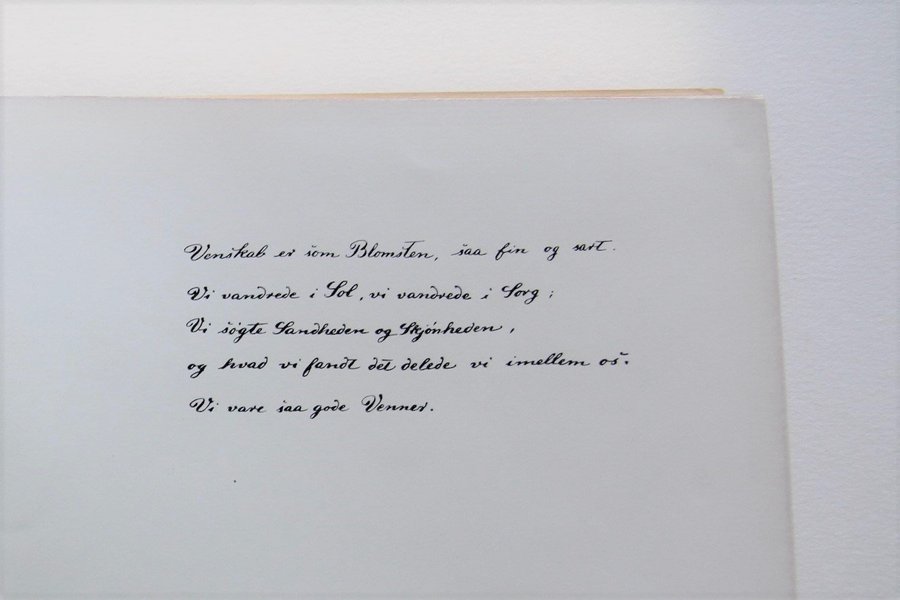 Venskab er som Blomsten, saa fin og sart.
Vi vandrede i Sol, vi vandrede i Sorg;
Vi søgte Sandheden og Skjønheden,
og hvad vi fandt det delede vi imellem os.
Vi vare saa gode Venner.